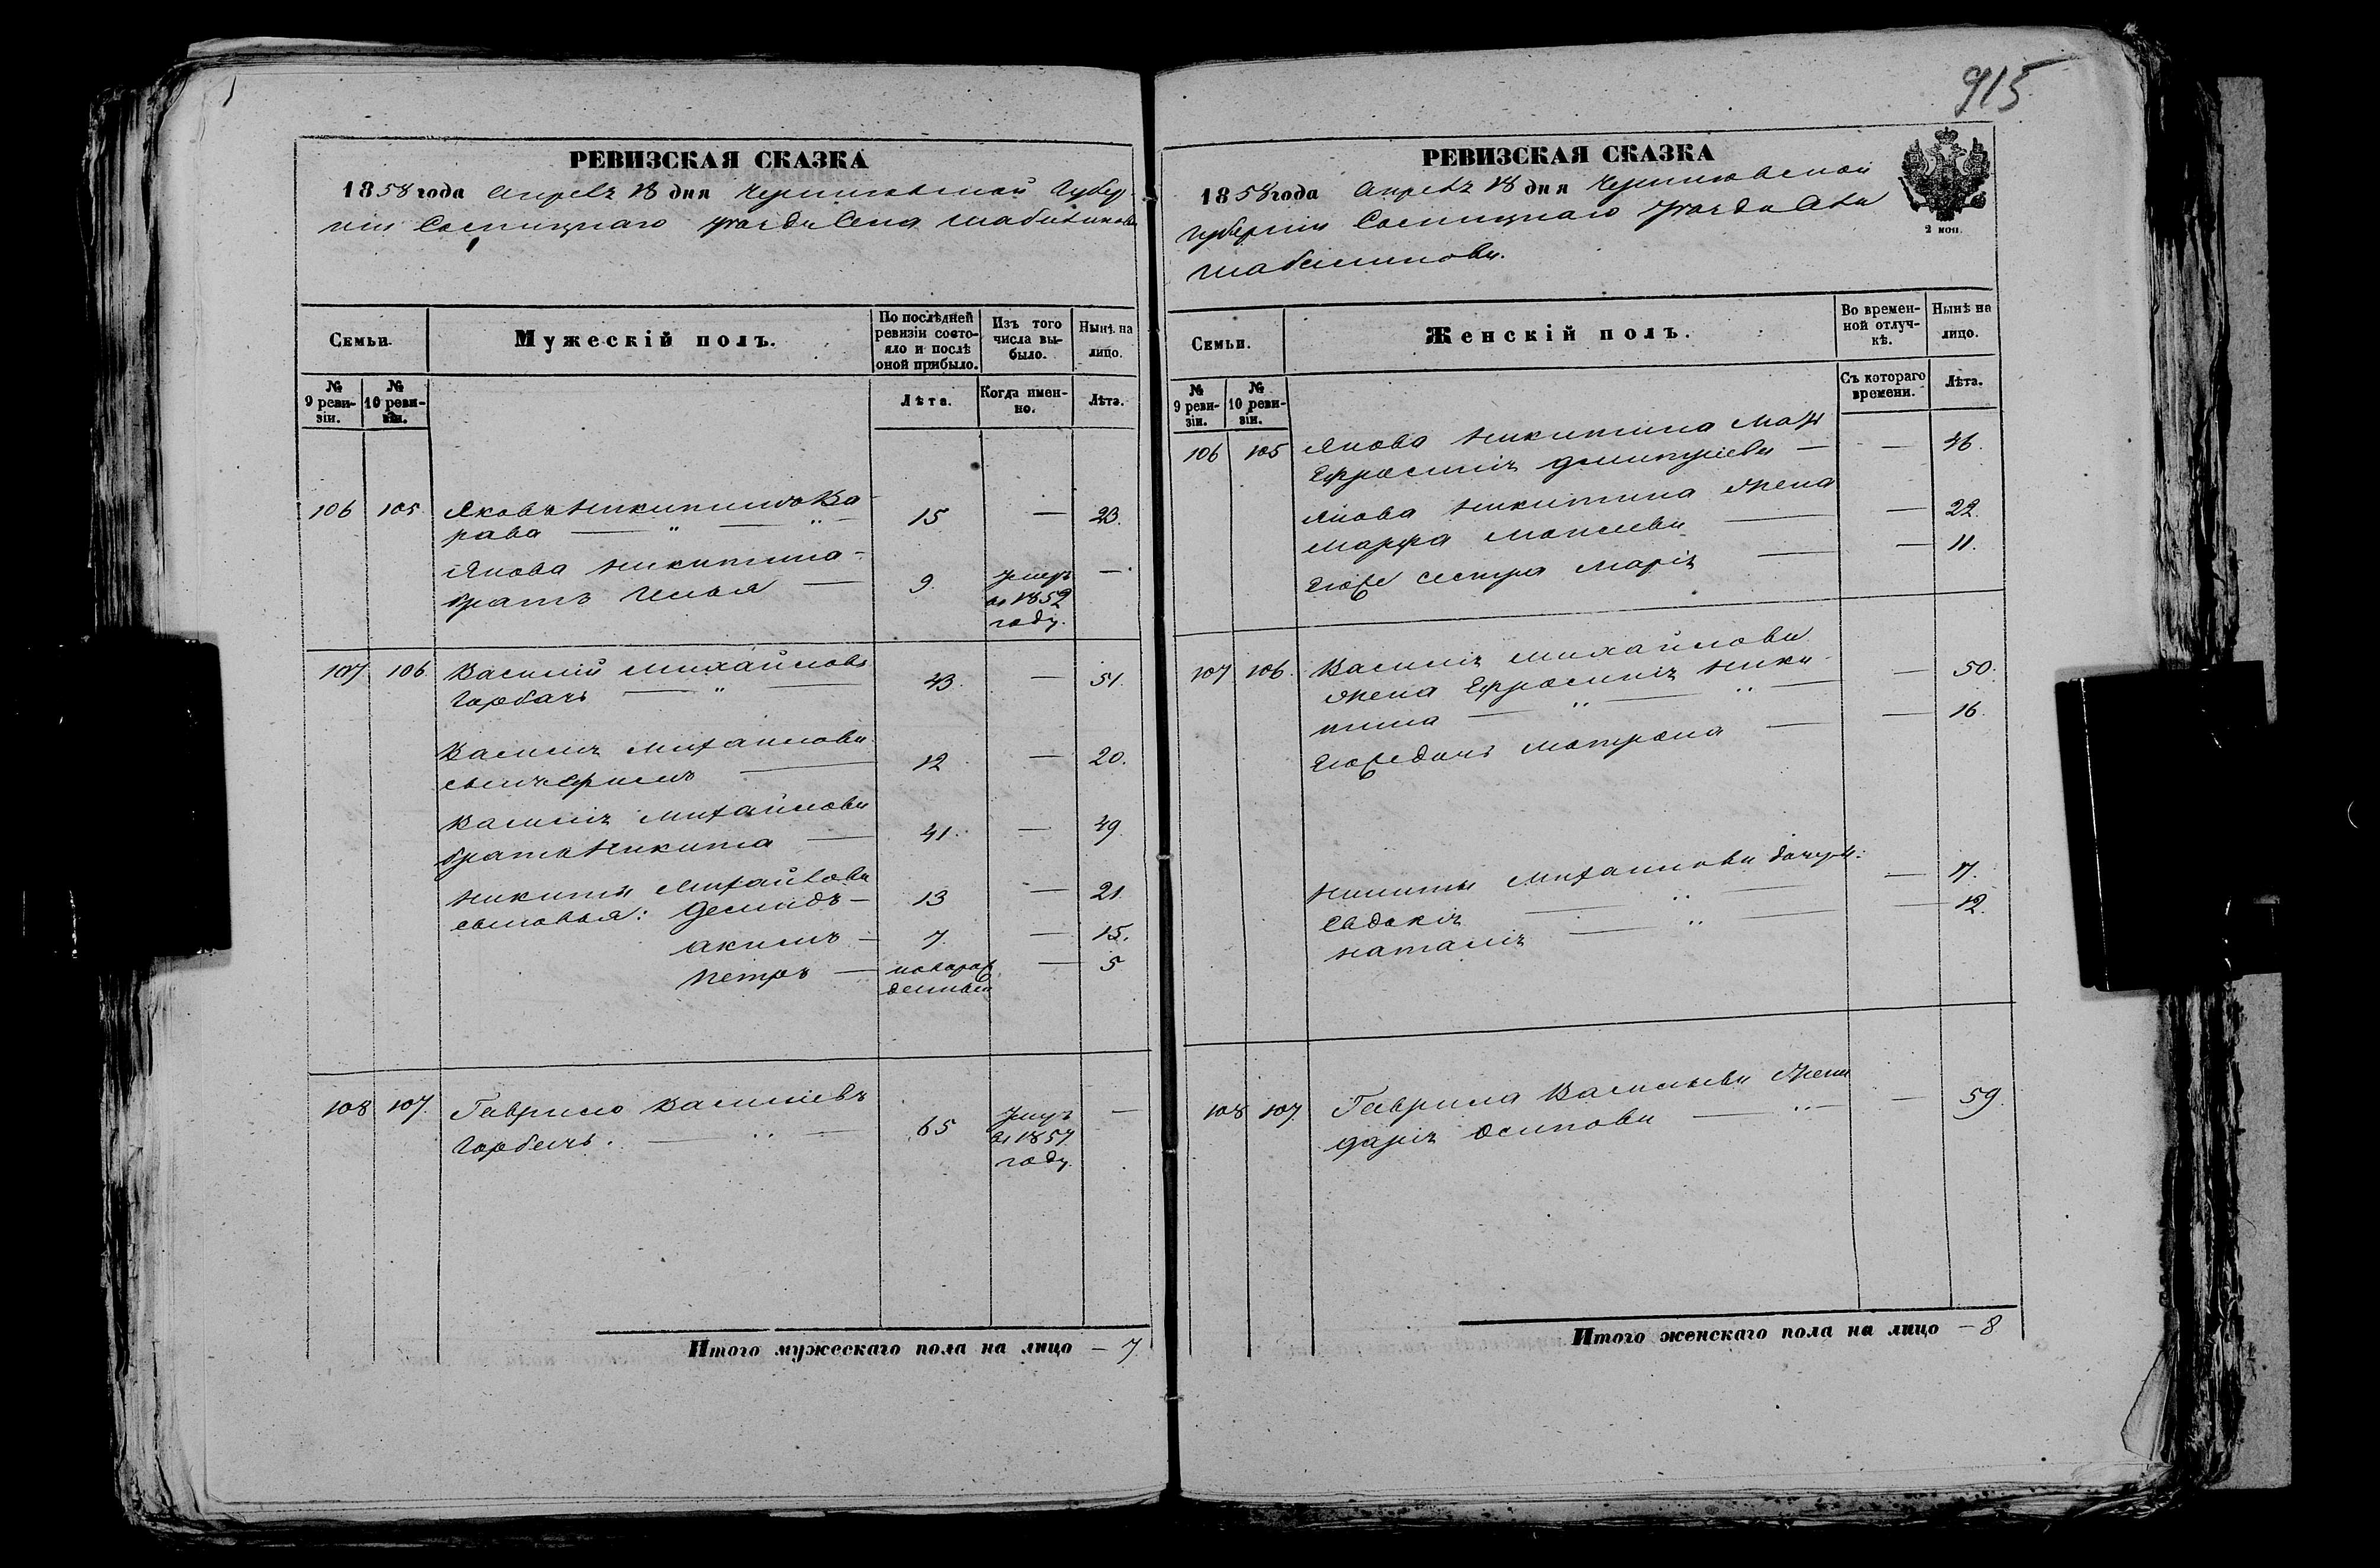 915
РЕВИЗСКАЯ СКАЗКА
1858 года Апреля 18 дня Черниговской Губер-
нии Сосницкаго уезда Села Шабалинова
Семьи.
Мужескій полъ.
По послѣдней ревизіи состо-яло и послѣ оной прибыло.
Изъ того числа вы-было.
Нынѣ на лицо.
№ 9 реви-зіи.
№ 10 реви-зіи.
Лѣта.
Когда имен-но.
Лѣта.
106 105 Яковъ Никитинъ Ва
рава 15 — 23.
Якова Никитина
братъ Илья — 9. Умеръ —
въ 1852
году.
107 106 Василій Михайловъ
Горбачъ — " — 43. — 51.
Василія Михайлова
сынъ Ефимъ — 12 — 20.
Василія Михайлова
братъ Никита — 41. — 49.
Никиты Михайлова
сыновья: Демидъ — 13 — 21.
Акимъ — 7. — 15.
Петръ — новорож — 5
денный
108 107. Гаврило Васильевъ
Горбачъ. — " — 65 Умеръ —
въ 1857
году.
Итого мужескаго пола на лицо — 7
РЕВИЗСКАЯ СКАЗКА
1858 года Апреля 18 дня Черниговской
Губерніи Сосницкаго уезда Села
Шабалинова.
2 коп.
Семьи.
Женскій полъ.
Во времен-ной отлуч-кѣ.
Нынѣ на лицо.
№ 9 реви-зіи.
№ 10 реви-зіи.
Съ котораго времени.
Лѣта.
106 105 Якова Никитина Мать
Ефросинія Дмитріева — — 46.
Якова Никитина жена
Марфа Моисеева — — 22.
Его же сестра Марія — — 11.
107 106. Василія Михайлова
жена Ефросинія Ники — 50.
тина — " — " —
Его же дочь Матрона — — 16.
Никиты Михайлова дочери:
Евдокія — " — — 17.
Наталія — " — — 12.
108 107. Гаврила Васильева жена
Дарія Осипова — " — — 59.
Итого женскаго пола на лицо — 8